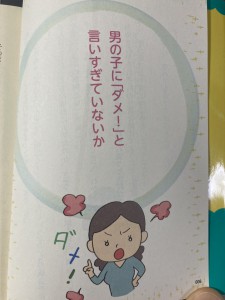 男の子に「ダメ！」と
言いすぎていないか
ダメ！